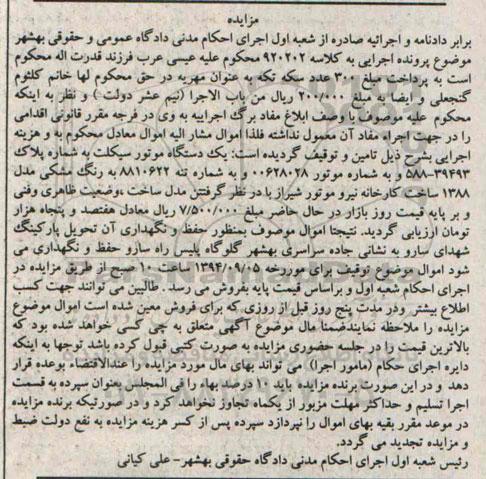 مزایده
برابر دادنامه و اجرائیه صادره از شعبه اول اجرای احکام مدنی دادگاه عمومی و حقوقی بهشهر
موضوع پرونده اجرایی به کلاسه ۹۲۰۲۰۲ محکوم علیه عیسی عرب فرزند قدرت اله محکوم
است به پرداخت مبلغ ۳۰۰ عدد سکه تکه به عنوان مهریه در حق محکوم لها خانم کلثوم
گنجعلی و ایضا به مبلغ ۲۰۰۰۰۰ ریال من باب الاجرا (نیم عشر دولت ) و نظر به اینکه
محکوم علیه موصوف با وصف ابلاغ مفاد برگ اجراییه به وی در فرجه مقرر قانونی اقدامی
را در جهت اجراء مفاد آن معمول نداشته فلذا اموال مشار الیه اموال معادل محکوم به و هزینه
اجرایی بشرح ذیل تامین و توقیف گردیده است: یک دستگاه موتور سیکلت به شماره پلاک
۵۸۸-۳۹۴۹۳ و به شماره موتور ۰۰۶۲۸۰۲۸ و به شماره تنه ۸۸۱۰۶۲۲ به رنگ مشکی مدل
۱۳۸۸ ساخت کارخانه نیرو موتور شیراز با در نظر گرفتن مدل ساخت ،وضعیت ظاهری وفنی
و بر پایه قیمت روز بازار در حال حاضر مبلغ ۷/۵۰۰/۰۰۰ ریال معادل هفتصد و پنجاه هزار
تومان ارزیابی گردید. نتیجتا اموال موصوف بمنظور حفظ و نگهداری آن تحویل پارکینگ
شهدای سارو به نشانی جاده سراسری بهشهر گلوگاه پلیس راه سارو حفظ و نگهداری می
شود اموال موضوع توقیف برای مورخه ۱۳۹۴/۰۹/۰۵ ساعت ۱۰ صبح از طریق مزایده در
اجرای احکام شعبه اول و براساس قیمت پایه بفروش می رسد . طالبین می توانند جهت کسب
اطلاع بیشتر ودر مدت پنج روز قبل از روزی که برای فروش معین شده است اموال موضوع
مزایده را ملاحظه نمایندضمنا مال موضوع آگهی متعلق به کسی خواهد شده بود که
بالاترین قیمت را در جلسه حضوری مزایده به صورت کتبی قبول کرده باشد توجها به اینکه
دایره اجرای حکام (مامور اجرا) می تواند بهای مال مورد مزایده را عندالاقتضاء بوعده قرار
دهد و در این صورت برنده مزایده باید ۱۰ درصد بهاء را فی المجلس بعنوان سپرده به قسمت
اجرا تسلیم و حداکثر مهلت مزبور از یکماه تجاوز نخواهد کرد و در صورتیکه برنده مزایده
در موعد مقرر بقیه بهای اموال را نپردازد سپرده پس از کسر هزینه مزایده به نفع دولت ضبط
و مزایده تجدید می گردد.
رئیس شعبه اول اجرای احکام مدنی دادگاه حقوقی بهشهر- علی کیانی